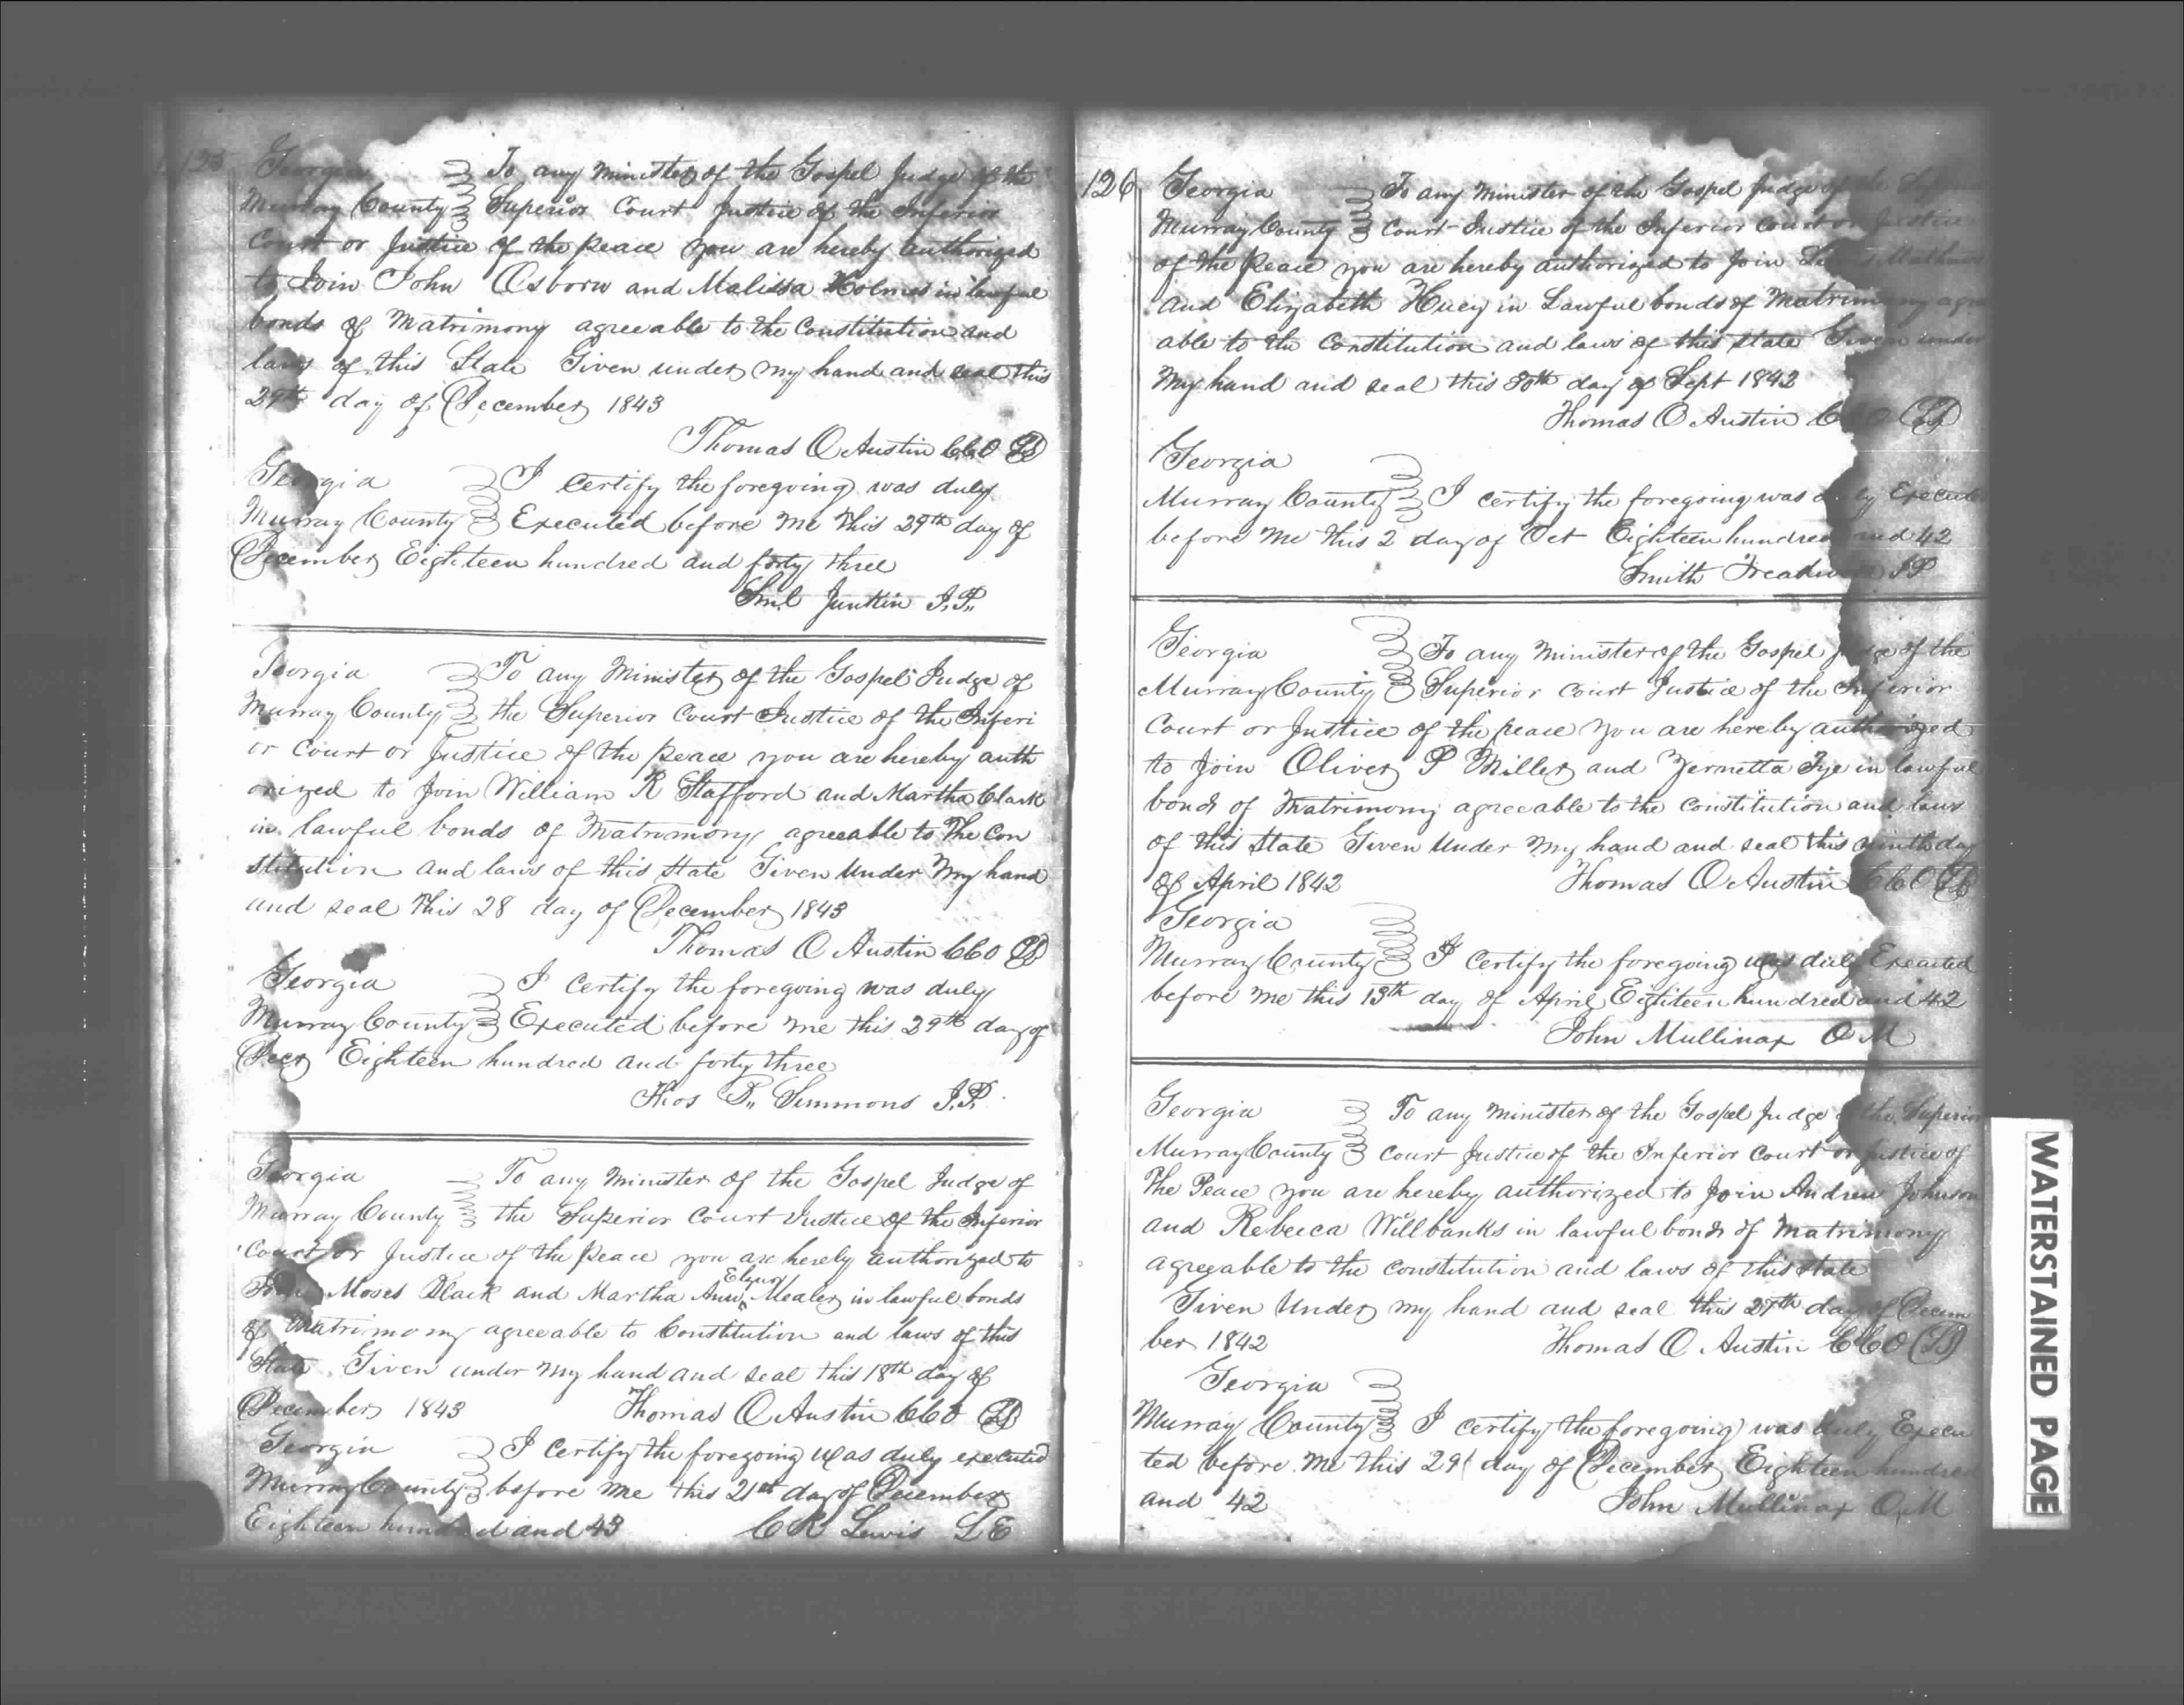 125
Georgia To any minister of the Gospel Judge of the
Murray County Superior Court Justice of the Inferior
Court or Justice of the peace you are hereby authorized
to Join John Osborn and Malissa Holmes in lawful
bonds of Matrimony agreeable to the Constitution and
laws of this State Given under my hand and seal this
29th day of December 1843
Thomas Q Austin CCO LS
Georgia I certify the foregoing was duly
Murray County Executed before me this 29th day of
December Eighteen hundred and forty three
Saml Junkin J.P.
Georgia To any Minister of the Gospel Judge of
Murray County the Superior Court Justice of the Inferi
or Court or Justice of the peace you are hereby auth
orized to Join William R Stafford and Martha Clark
in lawful bonds of Matrimony agreeable to the Con
stitution and laws of this State Given Under My hand
and seal this 28 day of December 1843
Thomas Q Austin CCO LS
Georgia I certify the foregoing was duly
Murray County Executed before me this 29th day of
Decr Eighteen hundred and forty three
Thos P. Simmons J.P.
Georgia To any minister of the Gospel Judge of
Murray County the Superior Court Justice of the Inferior
Court or Justice of the peace you are hereby authorized to
Join Moses Black and Martha Ann Mealer in lawful bonds
of Matrimony agreeable to Constitution and laws of this
State Given under my hand and seal this 18th day of
December 1843 Thomas Q Austin CCO LS
Georgia I certify the foregoing was duly executed
Murray County before me this 21st day of December
Eighteen hundred and 43 C R Lewis L E
126
Georgia To any minister of the Gospel Judge of the
Murray County Court Justice of the Inferior Court or Justice
of the Peace you are hereby authorized to Join
and Elizabeth Huey in Lawful bonds of Matrimony agre
able to the Constitution and laws of this State Given under
my hand and seal this 30th day of Sept 1842
Thomas Q Austin CCO LS
Georgia
Murray County I certify the foregoing was duly Execute
before me this 2 day of Oct Eighteen hundred and 42
Smith JP
Georgia To any minister of the Gospel Judge of the
Murray County Superior Court Justice of the Inferior
Court or Justice of the peace you are hereby authorized
to Join Oliver P Miller and Zernetta Tye in lawful
bonds of Matrimony agreeable to the constitution and laws
of this State Given Under my hand and seal this ninth day
of April 1842 Thomas Q Austin CCO LS
Georgia
Murray County I certify the foregoing was duly Executed
before me this 13th day of April Eighteen hundred and 42
John Mullinax O M
Georgia To any minister of the Gospel Judge of the Superior
Murray County Court Justice of the Inferior Court or Justice of
the Peace you are hereby authorized to Join Andrew Johnson
and Rebecca Willbanks in lawful bonds of Matrimony
agreeable to the constitution and laws of this State
Given Under my hand and seal this 27th day of Decem
ber 1842 Thomas Q Austin CCO LS
Georgia
Murray County I certify the foregoing was duly Execu
ted before me this 29 day of December Eighteen hundred
and 42 John Mullinax O M
WATERSTAINED PAGE